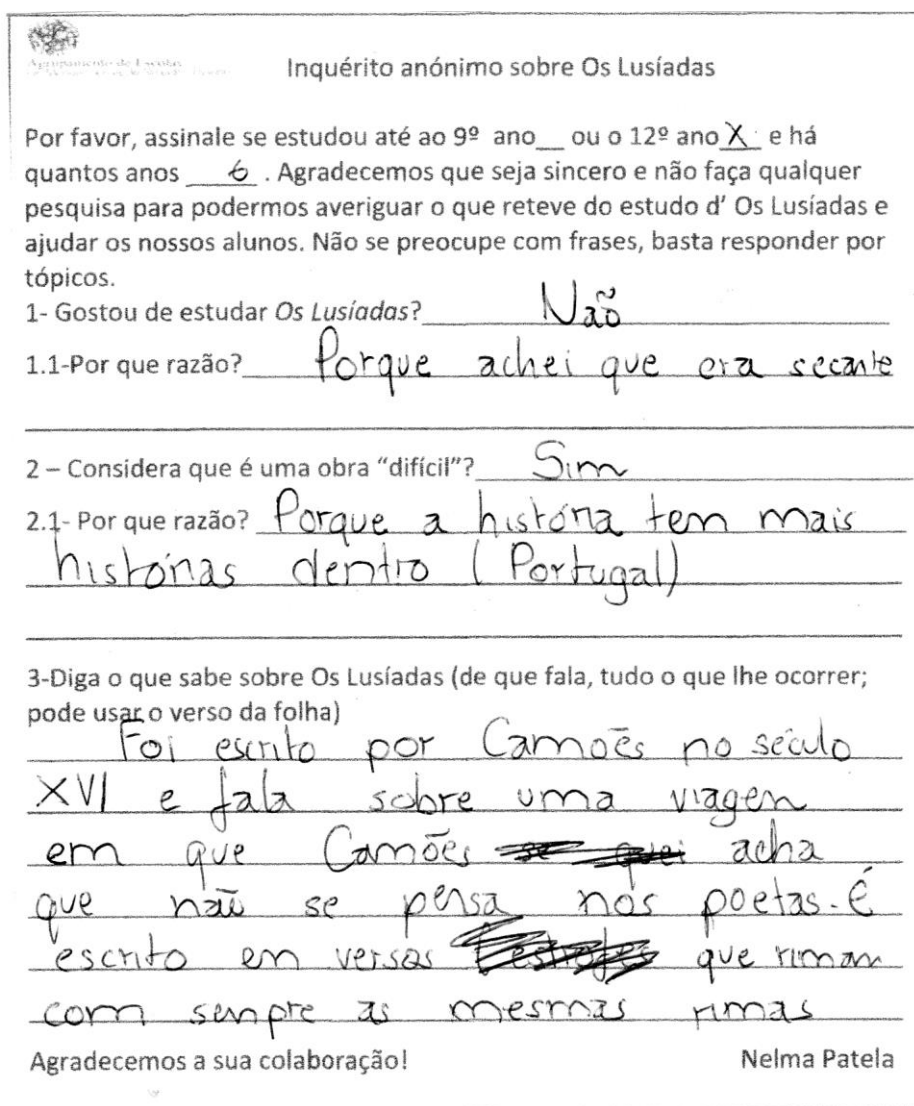 Agrupamento de Escolas
Inquérito anónimo sobre Os Lusíadas
Por favor, assinale se estudou até ao 9º ano__ ou o 12º ano X e há
quantos anos 6 . Agradecemos que seja sincero e não faça qualquer
pesquisa para podermos averiguar o que reteve do estudo d’ Os Lusíadas e
ajudar os nossos alunos. Não se preocupe com frases, basta responder por
tópicos.
1- Gostou de estudar Os Lusíadas? Não
1.1-Por que razão? Porque achei que era secante
2 – Considera que é uma obra “difícil”? Sim
2.1- Por que razão? Porque a história tem mais
histórias dentro (Portugal)
3-Diga o que sabe sobre Os Lusíadas (de que fala, tudo o que lhe ocorrer;
pode usar o verso da folha)
Foi escrito por Camoẽs no século
XVI e fala sobre uma viagem
em que Camões acha
que não se pensa nos poetas. É
escrito em versos que rimam
com sempre as mesmas rimas
Agradecemos a sua colaboração! Nelma Patela